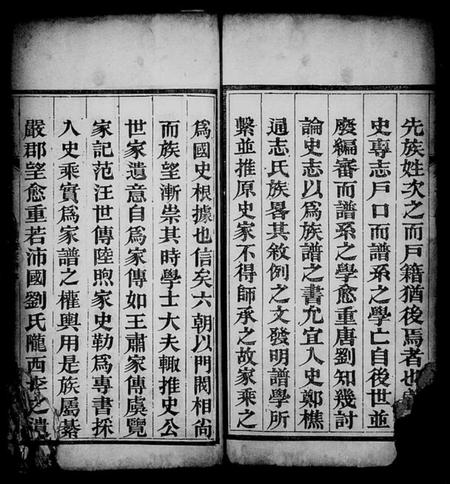 先族姓次之而戶籍猶後焉者也
史專志戶口而譜系之學亡自後世並
廢編審而譜系之學愈重唐劉知幾討
論史志以為族譜之書允宜入史鄭樵
通志氏族畧其敘例之文發明譜學所
繫並推原史家不得師承之故家乘之
為國史根據也信矣六朝以門閥相尙
而族望漸崇其時學士大夫輙推史公
世家遺意自為家傳如王肅家傳虞覽
家記范汪世傳陸煦家史勒為專書採
入史乘實為家譜之權輿用是族屬綦
嚴郡望愈重若沛國劉氏隴西李之